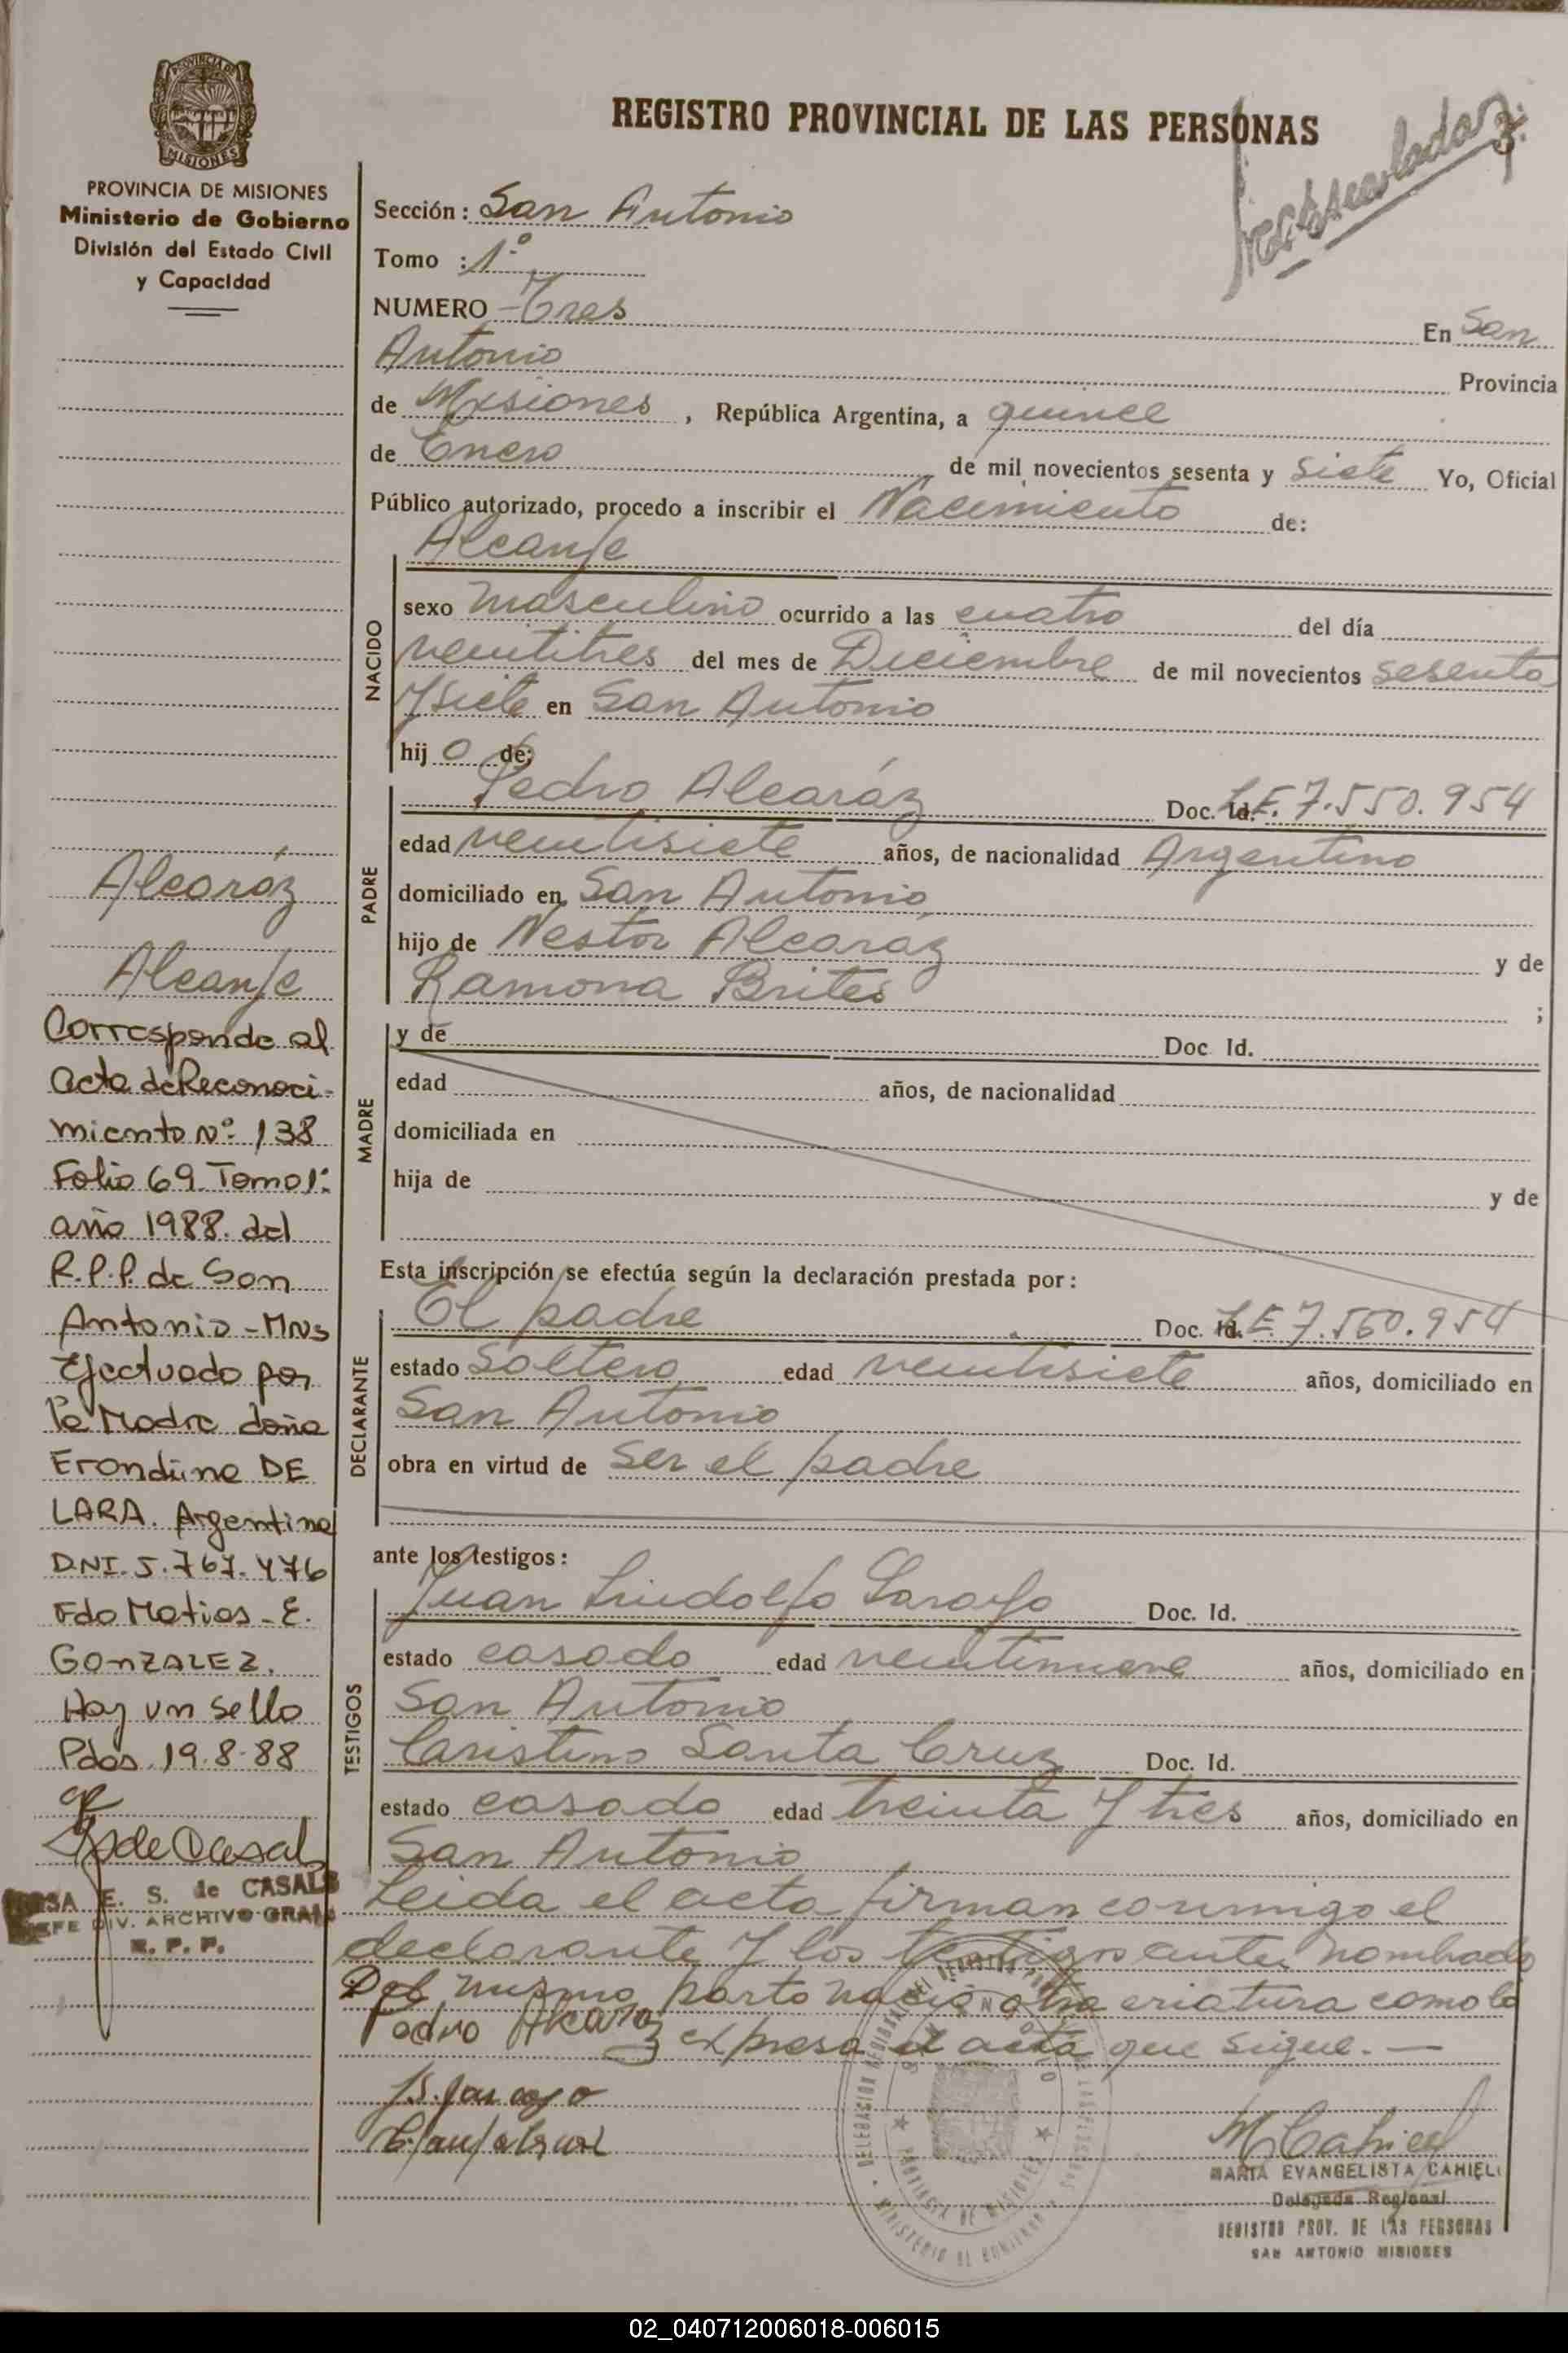 PROVINCIA DE MISIONES
Ministerio de Gobierno
División del Estado Civil
y Capacidad
REGISTRO PROVINCIAL DE LAS PERSONAS
3
Sección: San Antonio
Tomo : 1º
NUMERO - Tres En San
Antonio Provincia
de Misiones, República Argentina, a quince
de Enero de mil novecientos sesenta y siete Yo, Oficial
Público autorizado, procedo a inscribir el Nacimiento de:
NACIDO
Alcanje
sexo masculino ocurrido a las cuatro del día
veintitres del mes de Diciembre de mil novecientos sesenta
y siete en San Antonio
hijo de:
PADRE
Pedro Alcaráz Doc. Id. L.E. 7.550.954
edad veintisiete años, de nacionalidad Argentino
domiciliado en San Antonio
hijo de Nestor Alcaráz y de
Ramona Brites ;
MADRE
y de Doc Id.
edad años, de nacionalidad
domiciliada en
hija de y de
Esta inscripción se efectúa según la declaración prestada por:
DECLARANTE
El padre Doc. Id. L.E. 7.560.954
estado Soltero edad veintisiete años, domiciliado en
San Antonio
obra en virtud de ser el padre
ante los testigos:
TESTIGOS
Juan Lindolfo Doc. Id.
estado casado edad veintinueve años, domiciliado en
San Antonio
Cristino Santa Cruz Doc. Id.
estado casado edad treinta y tres años, domiciliado en
San Antonio
Leida el acta firman conmigo el
declarante y los testigos antes nombrado
Del mismo parto nacio otra criatura como lo
expresa el acta que sigue. —
Pedro Alcaraz
M Cahiel
MARIA EVANGELISTA CAHIEL
Delegada Regional
REGISTRO PROV. DE LAS PERSONAS
SAN ANTONIO MISIONES
Alcaráz
Alcanje
Corresponde al
acta de Reconoci-
miento Nº 138
Folio 69 Tomo 1º
año 1988. del
R.P.P. de San
Antonio - Mns
Efectuado por
la Madre doña
Erondina DE
LARA. Argentina
D.N.I. 5.767.476
Fdo Matias - E.
GONZALEZ.
Hay un sello
Pdas. 19.8-88
S de Casals
E. S. de CASALS
JEFE DIV. ARCHIVO GRAL
R. P. P.
02_040712006018-006015